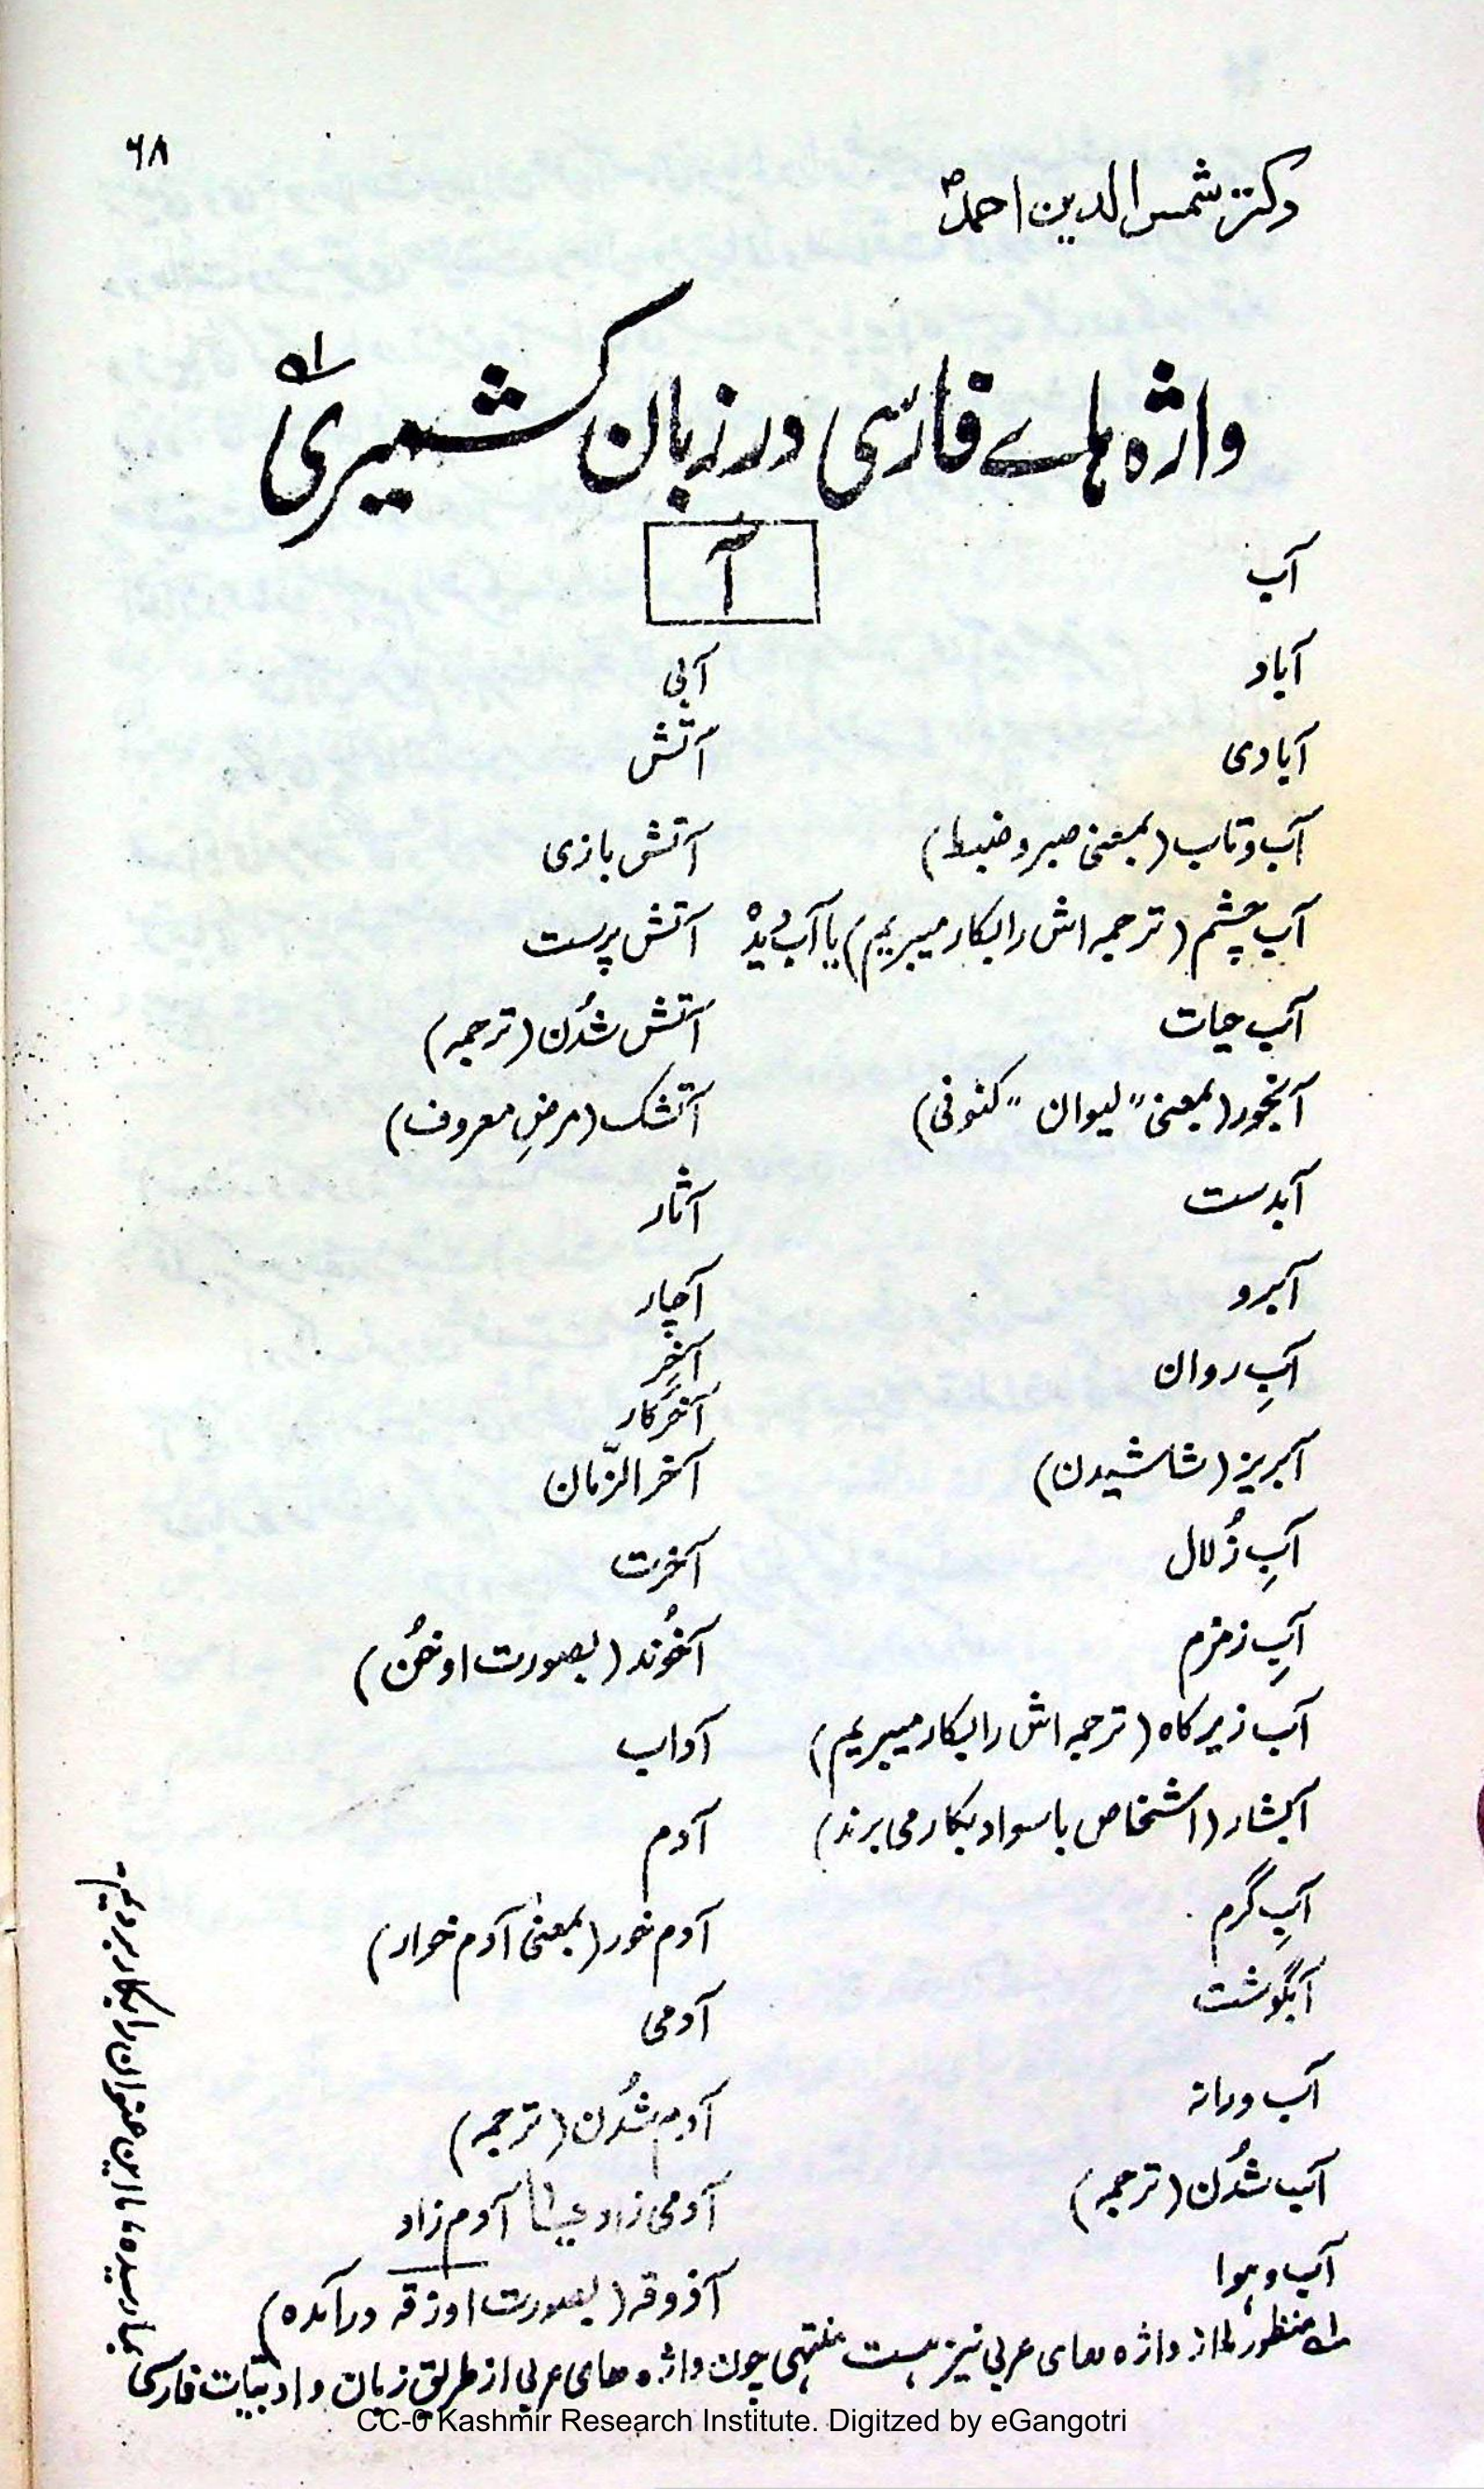 ۶۸
دکتر شمس الدین احمد
واژه ہاے فارسی در زبان کشمیری
آ
آب
آباد
آبادی
آب و تاب (بمعنی صبر و ضبط)
آب چشم (ترجمہ اش را بکار میبریم) یا آب دیدہ
آب حیات
آبخور (بمعنی "لیوان" کنونی)
آبدست
آبرو
آبِ روان
آبریز (شاشیدن)
آبِ زُلال
آبِ زمزم
آب زیر کاه (ترجمہ اش را بکار میبریم)
آبشار (اشخاص باسواد بکار می برند)
آبِ گرم
آبگوشت
آب و دانہ
آب شُدن (ترجمہ)
آب و ہوا
آبی
آتش
آتش بازی
آتش پرست
آتش شُدن (ترجمہ)
آتشک (مرضِ معروف)
آثار
آچار
آخِر
آخرکار
آخر الزّمان
آخرت
آخُوند (بصورت اوخُن)
آداب
آدم
آدم خور (بمعنیٰ آدم خوار)
آدمی
آدم شُدن (ترجمہ)
آدمی زاد یا آدم زاد
آذوقہ (بصورت اوزقہ درآمده)
منظور ما از واژه های عربی نیز ہست منتہی چون واژه های عربی از طریق زبان و ادبیّات فارسی
بما رسیده، ما این عنوان را بکار بردیم۔
CC-0 Kashmir Research Institute. Digitzed by eGangotri